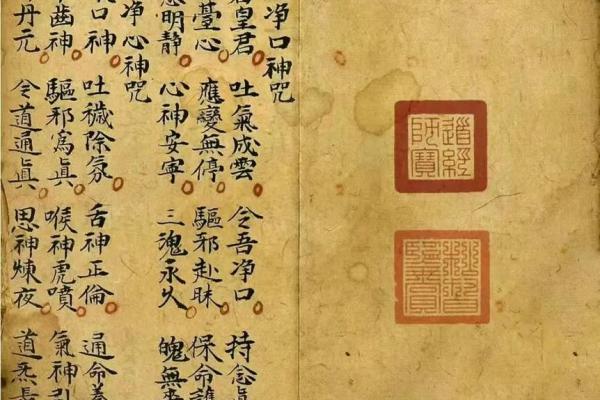 净口神咒
皇君 吐氣成雲 令吾净口 持念眞
臺心 應變無停 驅邪赴昧 保命護
明静 心神安寧 三魂永久 魄無
净心神咒
口神 吐穢除氛 舌神正倫 通命養
齒神 驅邪寫眞 喉神虎噴 氣神引
丹元 令道通眞 思神煉夜 道炁長
道經師寶